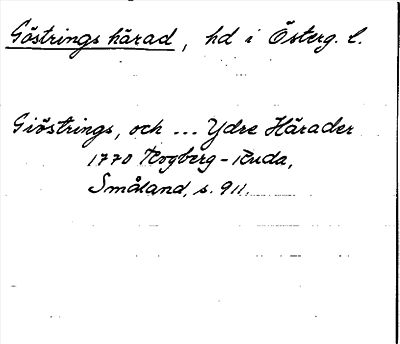 Göstrings härad, hd i Österg. l.
Giöstrings, och ... Ydre Härader
1770 Rogberg-Ruda,
Småland, s. 911.